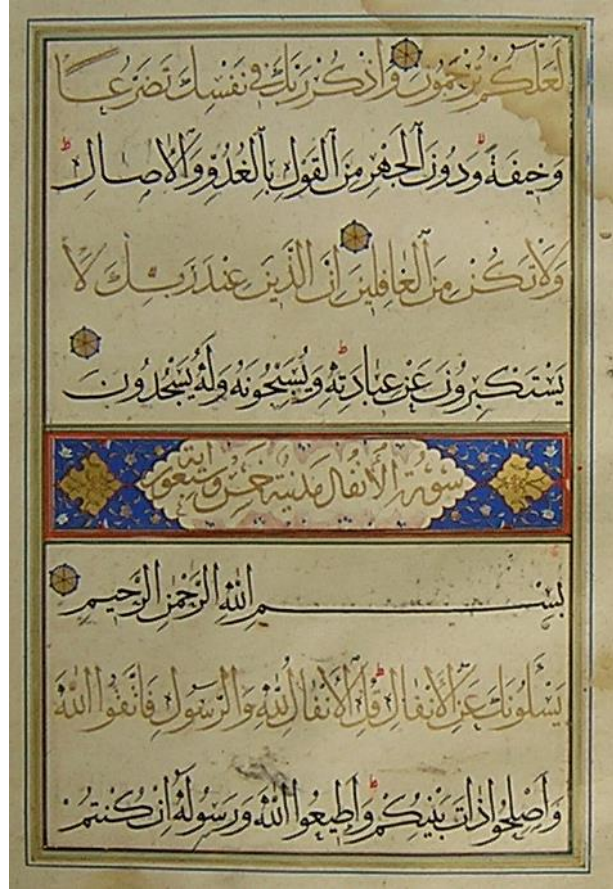 لَعَلَّكُمْ تُرْحَمُونَ وَاذْكُرْ رَبَّكَ فِي نَفْسِكَ تَضَرُّعًا
وَخِيفَةً وَدُونَ الْجَهْرِ مِنَ الْقَوْلِ بِالْغُدُوِّ وَالْآصَالِ
وَلَا تَكُنْ مِنَ الْغَافِلِينَ إِنَّ الَّذِينَ عِنْدَ رَبِّكَ لَا
يَسْتَكْبِرُونَ عَنْ عِبَادَتِهِ وَيُسَبِّحُونَهُ وَلَهُ يَسْجُدُونَ
سورة الأنفال مدنية خمس وسبعون آية
بِسْمِ اللَّهِ الرَّحْمَنِ الرَّحِيمِ
يَسْأَلُونَكَ عَنِ الْأَنْفَالِ قُلِ الْأَنْفَالُ لِلَّهِ وَالرَّسُولِ فَاتَّقُوا اللَّهَ
وَأَصْلِحُوا ذَاتَ بَيْنِكُمْ وَأَطِيعُوا اللَّهَ وَرَسُولَهُ إِنْ كُنْتُمْ